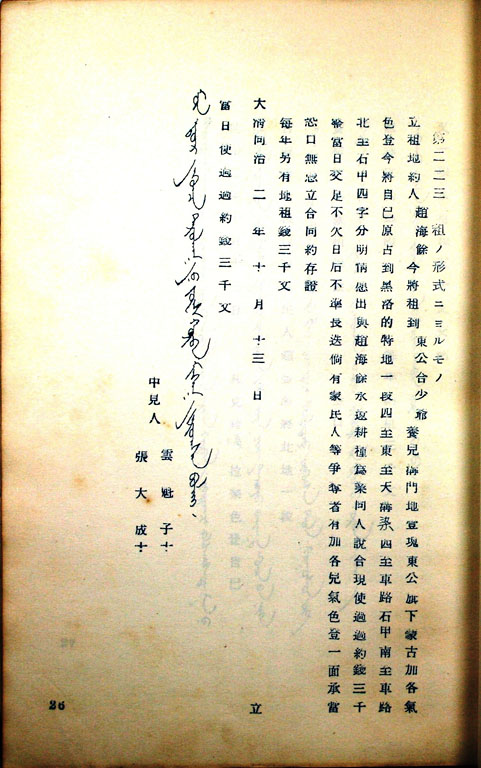 第二二三 租ノ形式ニヨルモノ
立租地約人 趙海餘 今將租到 東公合少爺 養兒溝門地壹塊東公旗下蒙古加各氣
色登今將自己原占到黑洛的特地一段四至東至天溝 四至車路石甲南至車路
北至石甲四字分明情愿出與趙海餘永遠耕種爲業同人說合現使過過約錢三千
當日交足不欠日后不準長迭倘有蒙民人等爭奪者有加各兒氣色登一面承當
恐口無憑立合同約存證
每年另有地租錢三千文
大淸同治二年十月十三日 立
當日使過過約錢三千文
中見人 雲魁子十
張大成十
26